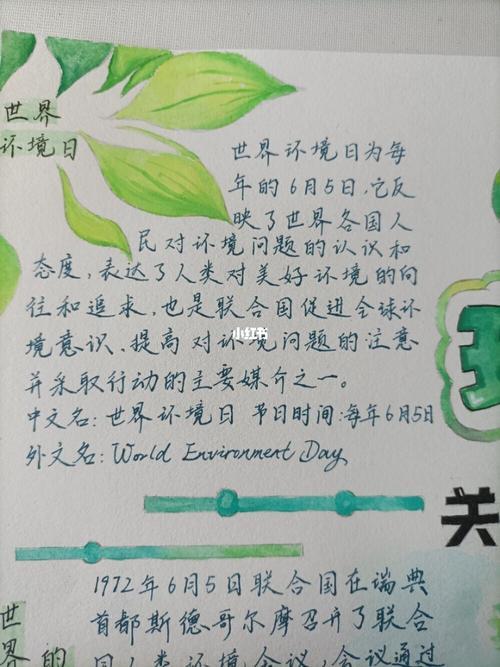 世界
环境日
世界环境日为每
年的6月5日,它反
映了世界各国人
民对环境问题的认识和
态度,表达了人类对美好环境的向
往和追求,也是联合国促进全球环
境意识、提高对环境问题的注意
并采取行动的主要媒介之一。
小红书
中文名:世界环境日 节日时间:每年6月5日
外文名:World Environment Day
关
1972年6月5日联合国在瑞典
首都斯德哥尔摩召开了联合
世
界
的
国人类环境会议,会议通过